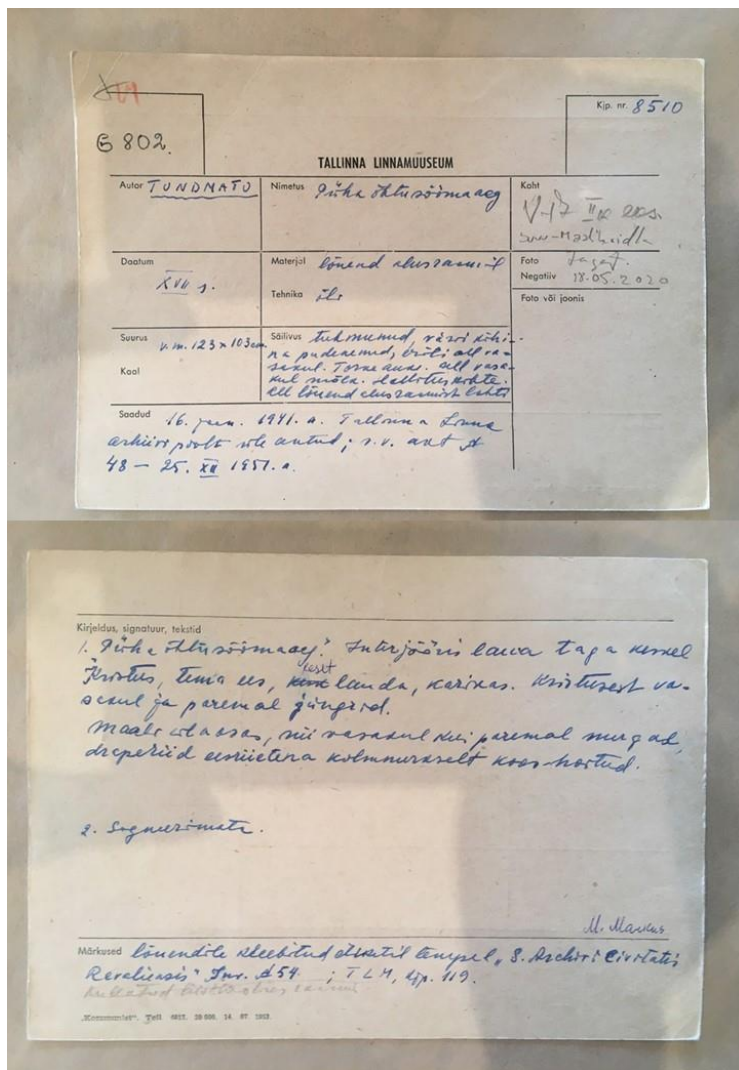 G 802.
Kjp. nr. 8510
TALLINNA LINNAMUUSEUM
Autor TUNDMATU
Nimetus Püha õhtusöömaaeg
Koht
V-17 II k
Daatum
XVII s.
Materjal lõuend alusraamil
Tehnika õli
Foto
Negatiiv 18.05.2020
Foto või joonis
Suurus v.m. 123 x 103 cm.
Kaal
Säilivus tuhmunud, värvi kohi-
ti pudenemud, all va-
sakul. all vasa-
kul mõla. Hallituskohte.
All lõuend alusraamist lahti
Saadud 16. 1941. a. Tallinna Linna
arhiivi poolt üle antud; s.v. akt №
48 — 25. XII 1951. a.
Kirjeldus, signatuur, tekstid
1. "Püha õhtusöömaaeg". Interjööris laua taga keskel
Kristus, tema ees, keset lauda, karikas. Kristusest va-
sakul ja paremal jüngrid.
Maali ülaosas, nii vasakul kui paremal nurgad,
drapeeriid eesriietena kolmnurkselt koos hoitud.
2. Signeerimata.
M. Mankus
Märkused lõuendile kleebitud etiketil tempel „S. Archivi Civitatis
Revaliensis" Inv. № 54 ; TLM, kjp. 119.
„Kommunist". Tell. 4621. 20 000. 14. 07. 1953